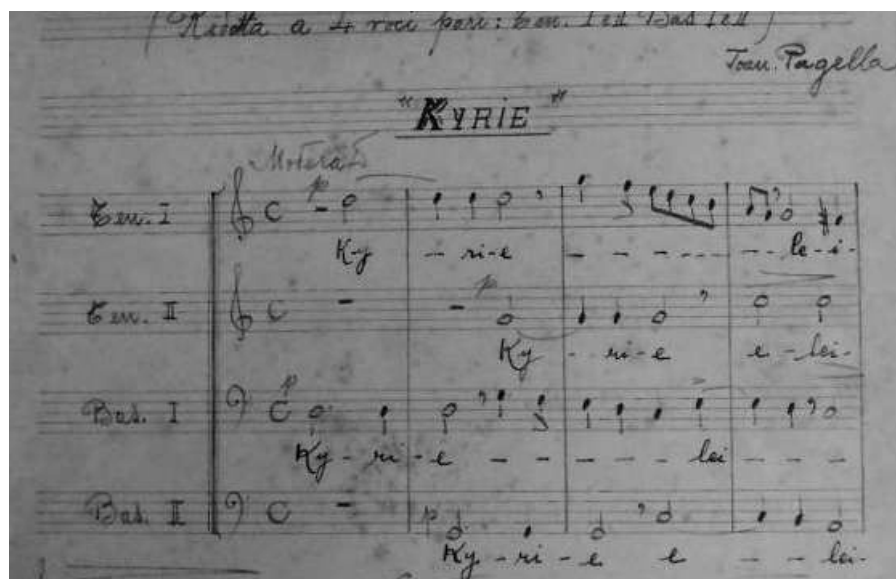 (Ridotta a 4 voci pari: Ten. I e II Bas I e II)
Joan. Pagella
"KYRIE"
Moderato
Ten. I
p
C
Ky - ri-e - - - - - - - - le-i-
Ten. II
C
p
Ky - ri-e e-lei-
Bas. I
p
C
Ky-ri-e - - - - - - lei - - - -
Bas. II
C
p
Ky-ri-e e - - lei-